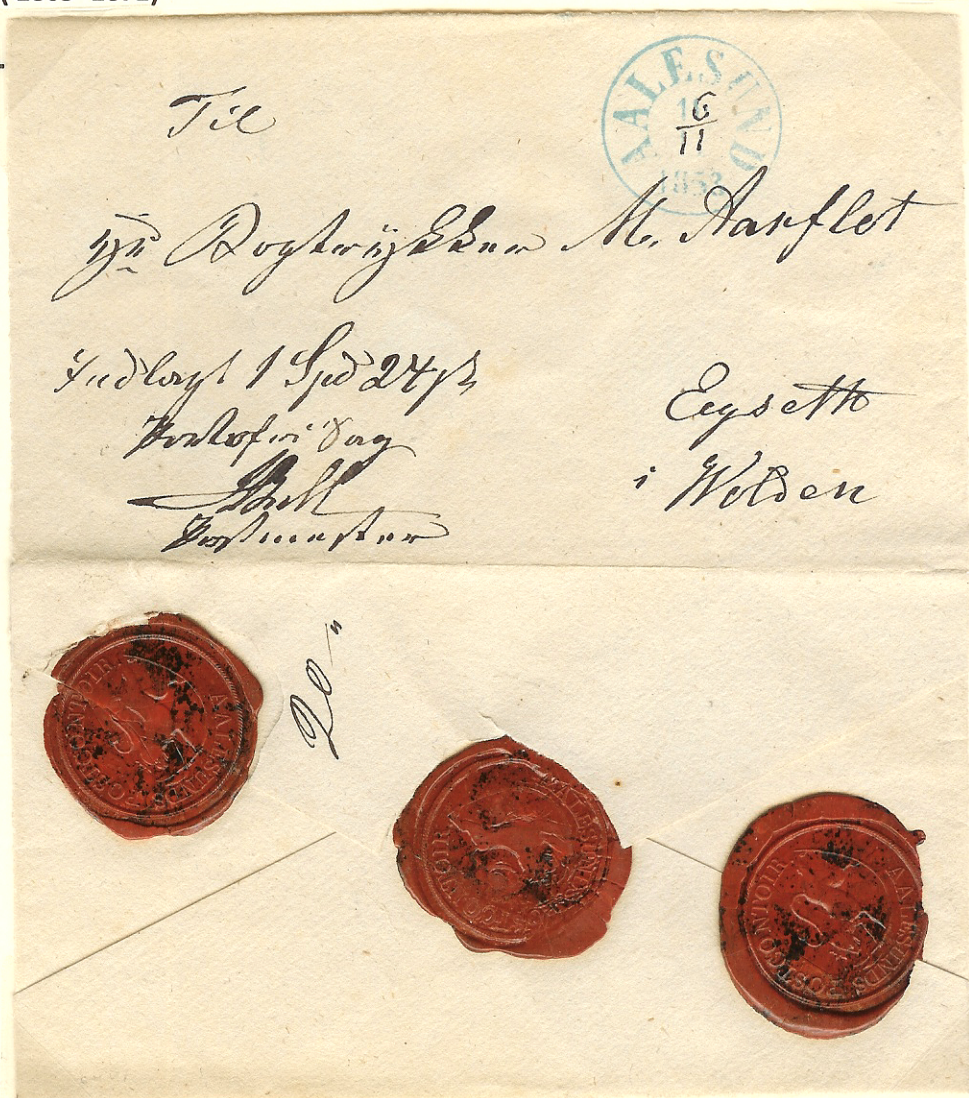 AALESUND
16
11
1853
6
11
Til
Hr Bogtrykker M. Aarflot
Indlagt 1 Spd 24 ß
Portofri Sag
Postmester
Egseth
i Wolden
20"
AALESUNDS POSTCONTOIR
AALESUNDS POSTCONTOIR
AALESUNDS POSTCONTOIR